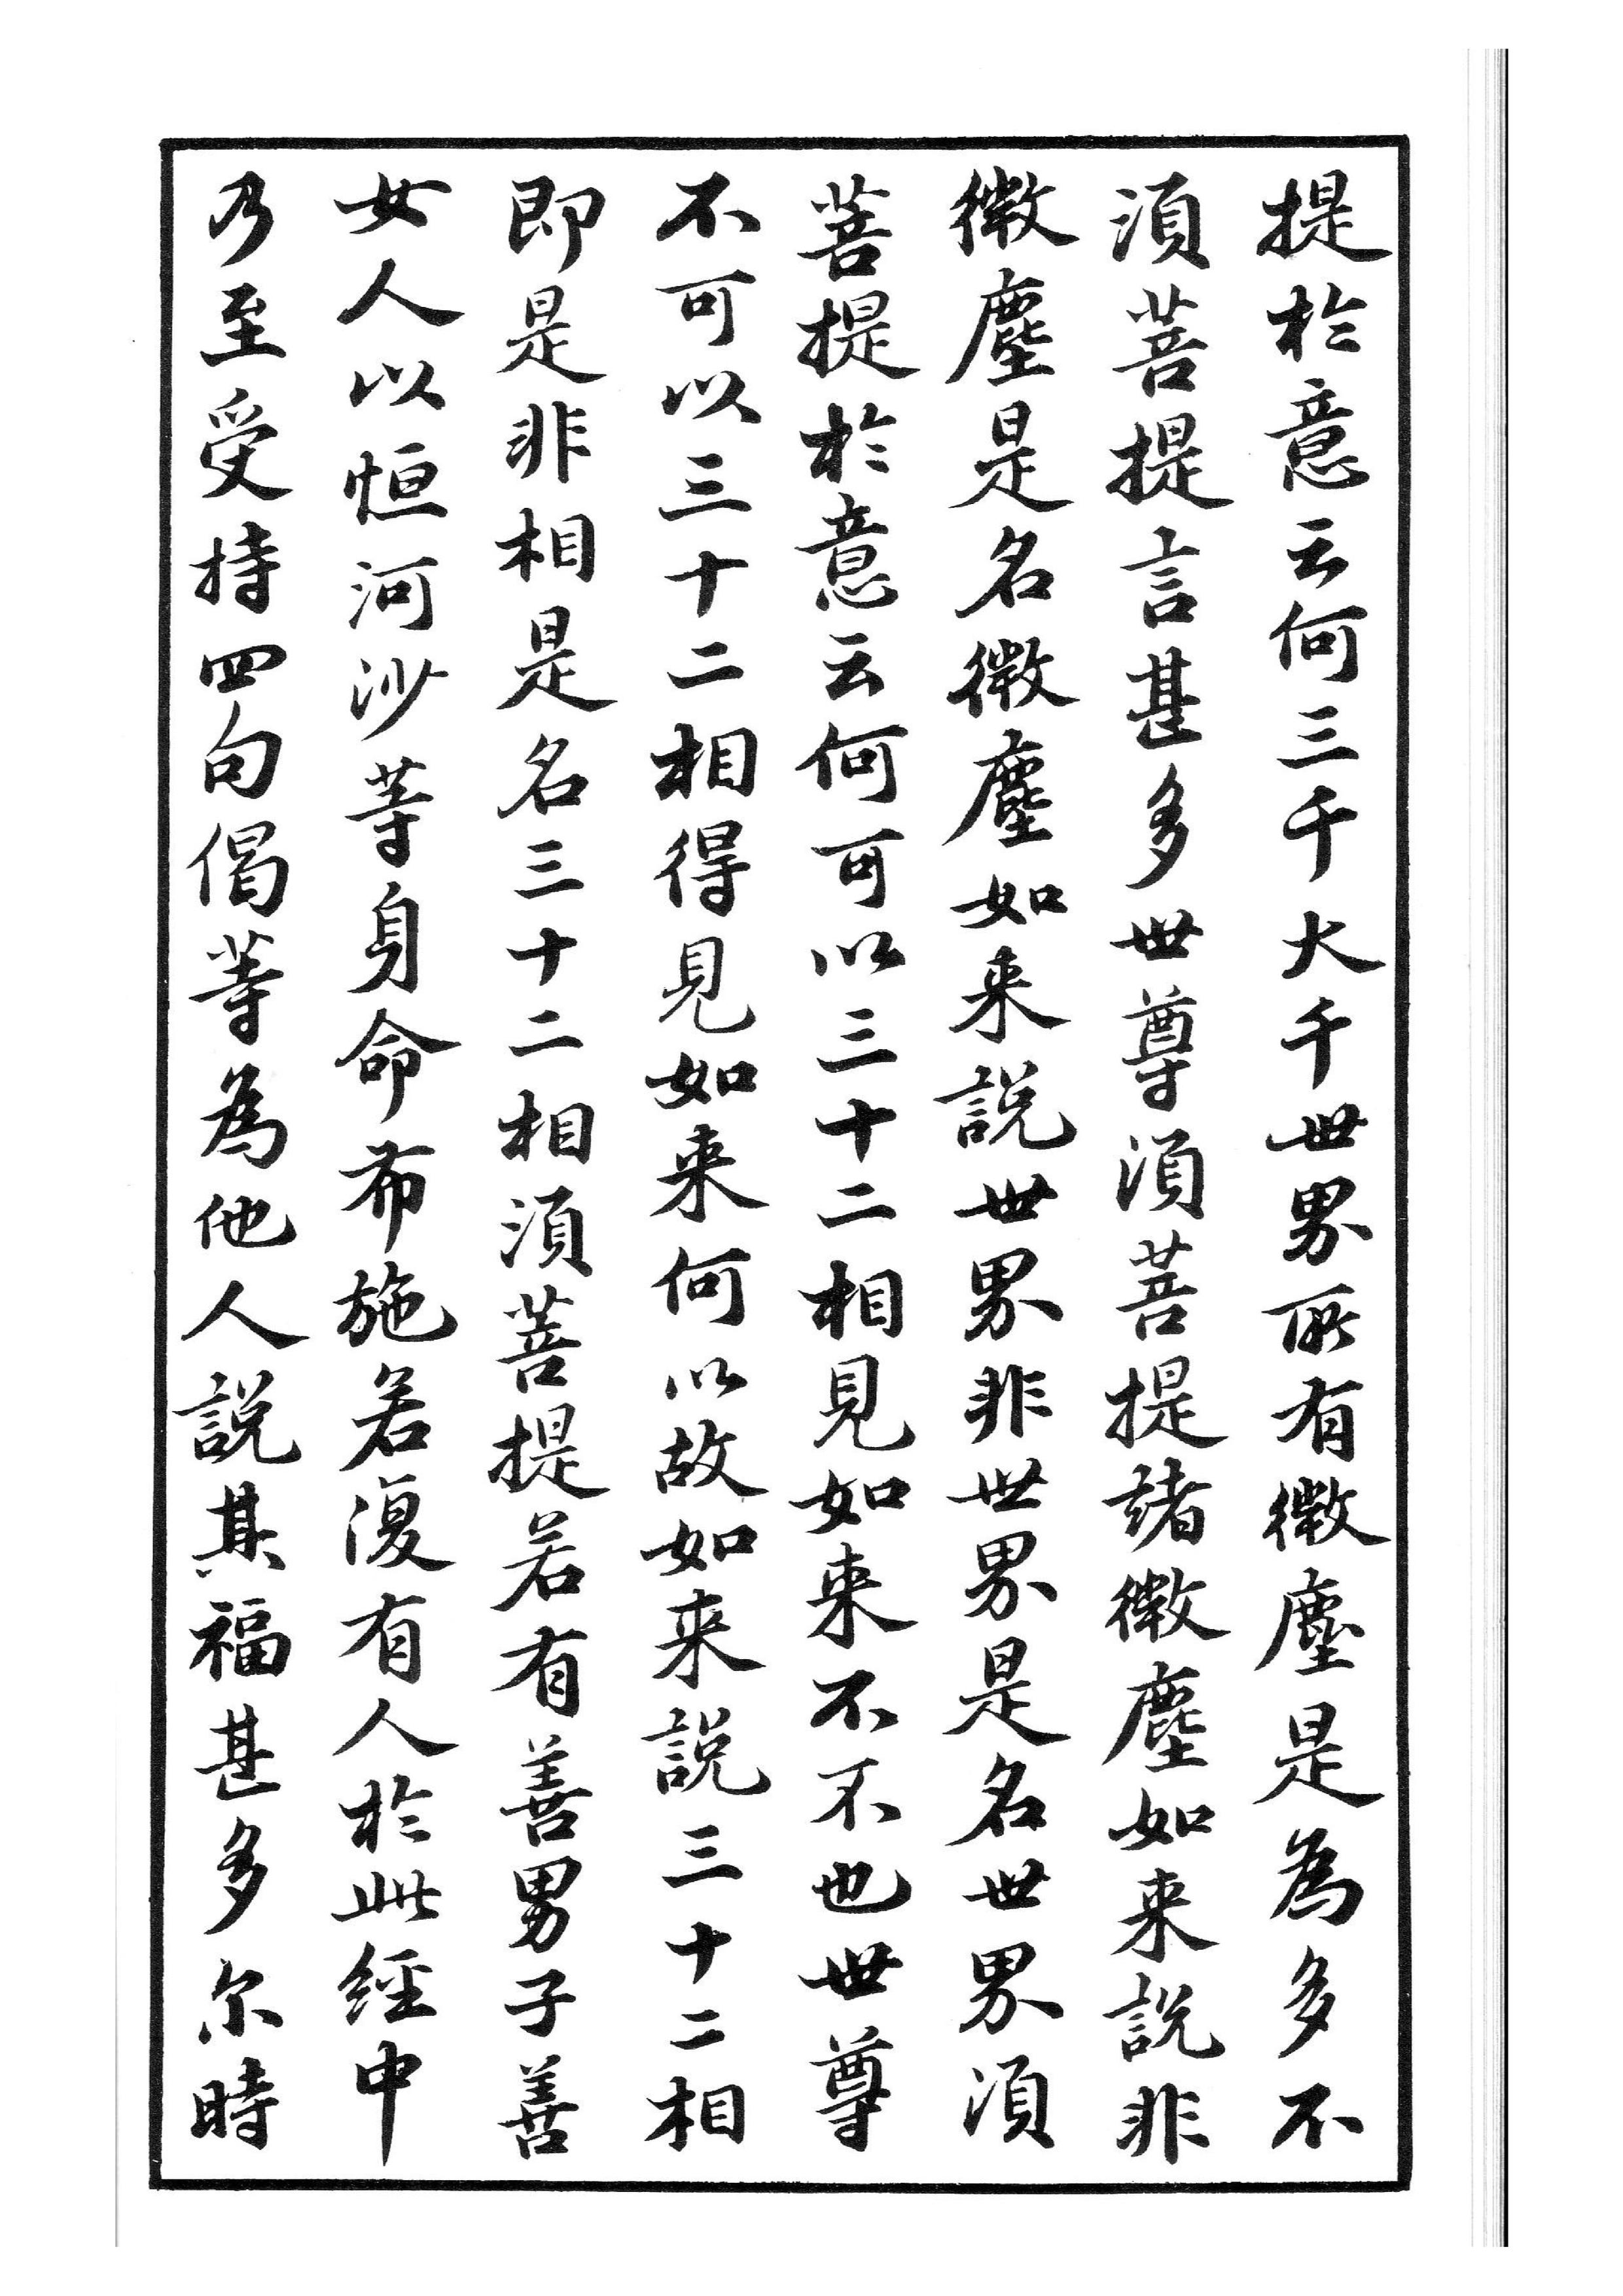 提於意云何三千大千世界所有微塵是為多不
須菩提言甚多世尊須菩提諸微塵如来說非
微塵是名微塵如来說世界非世界是名世界須
菩提於意云何可以三十二相見如来不不也世尊
不可以三十二相得見如来何以故如来說三十二相
即是非相是名三十二相須菩提若有善男子善
女人以恒河沙等身命布施若復有人於此經中
乃至受持四句偈等為他人説其福甚多尔時